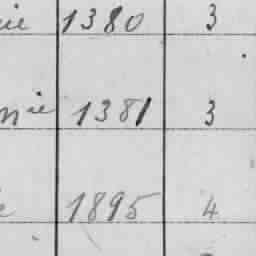 ie 1380 3
nie 1381 3
e 1895 4